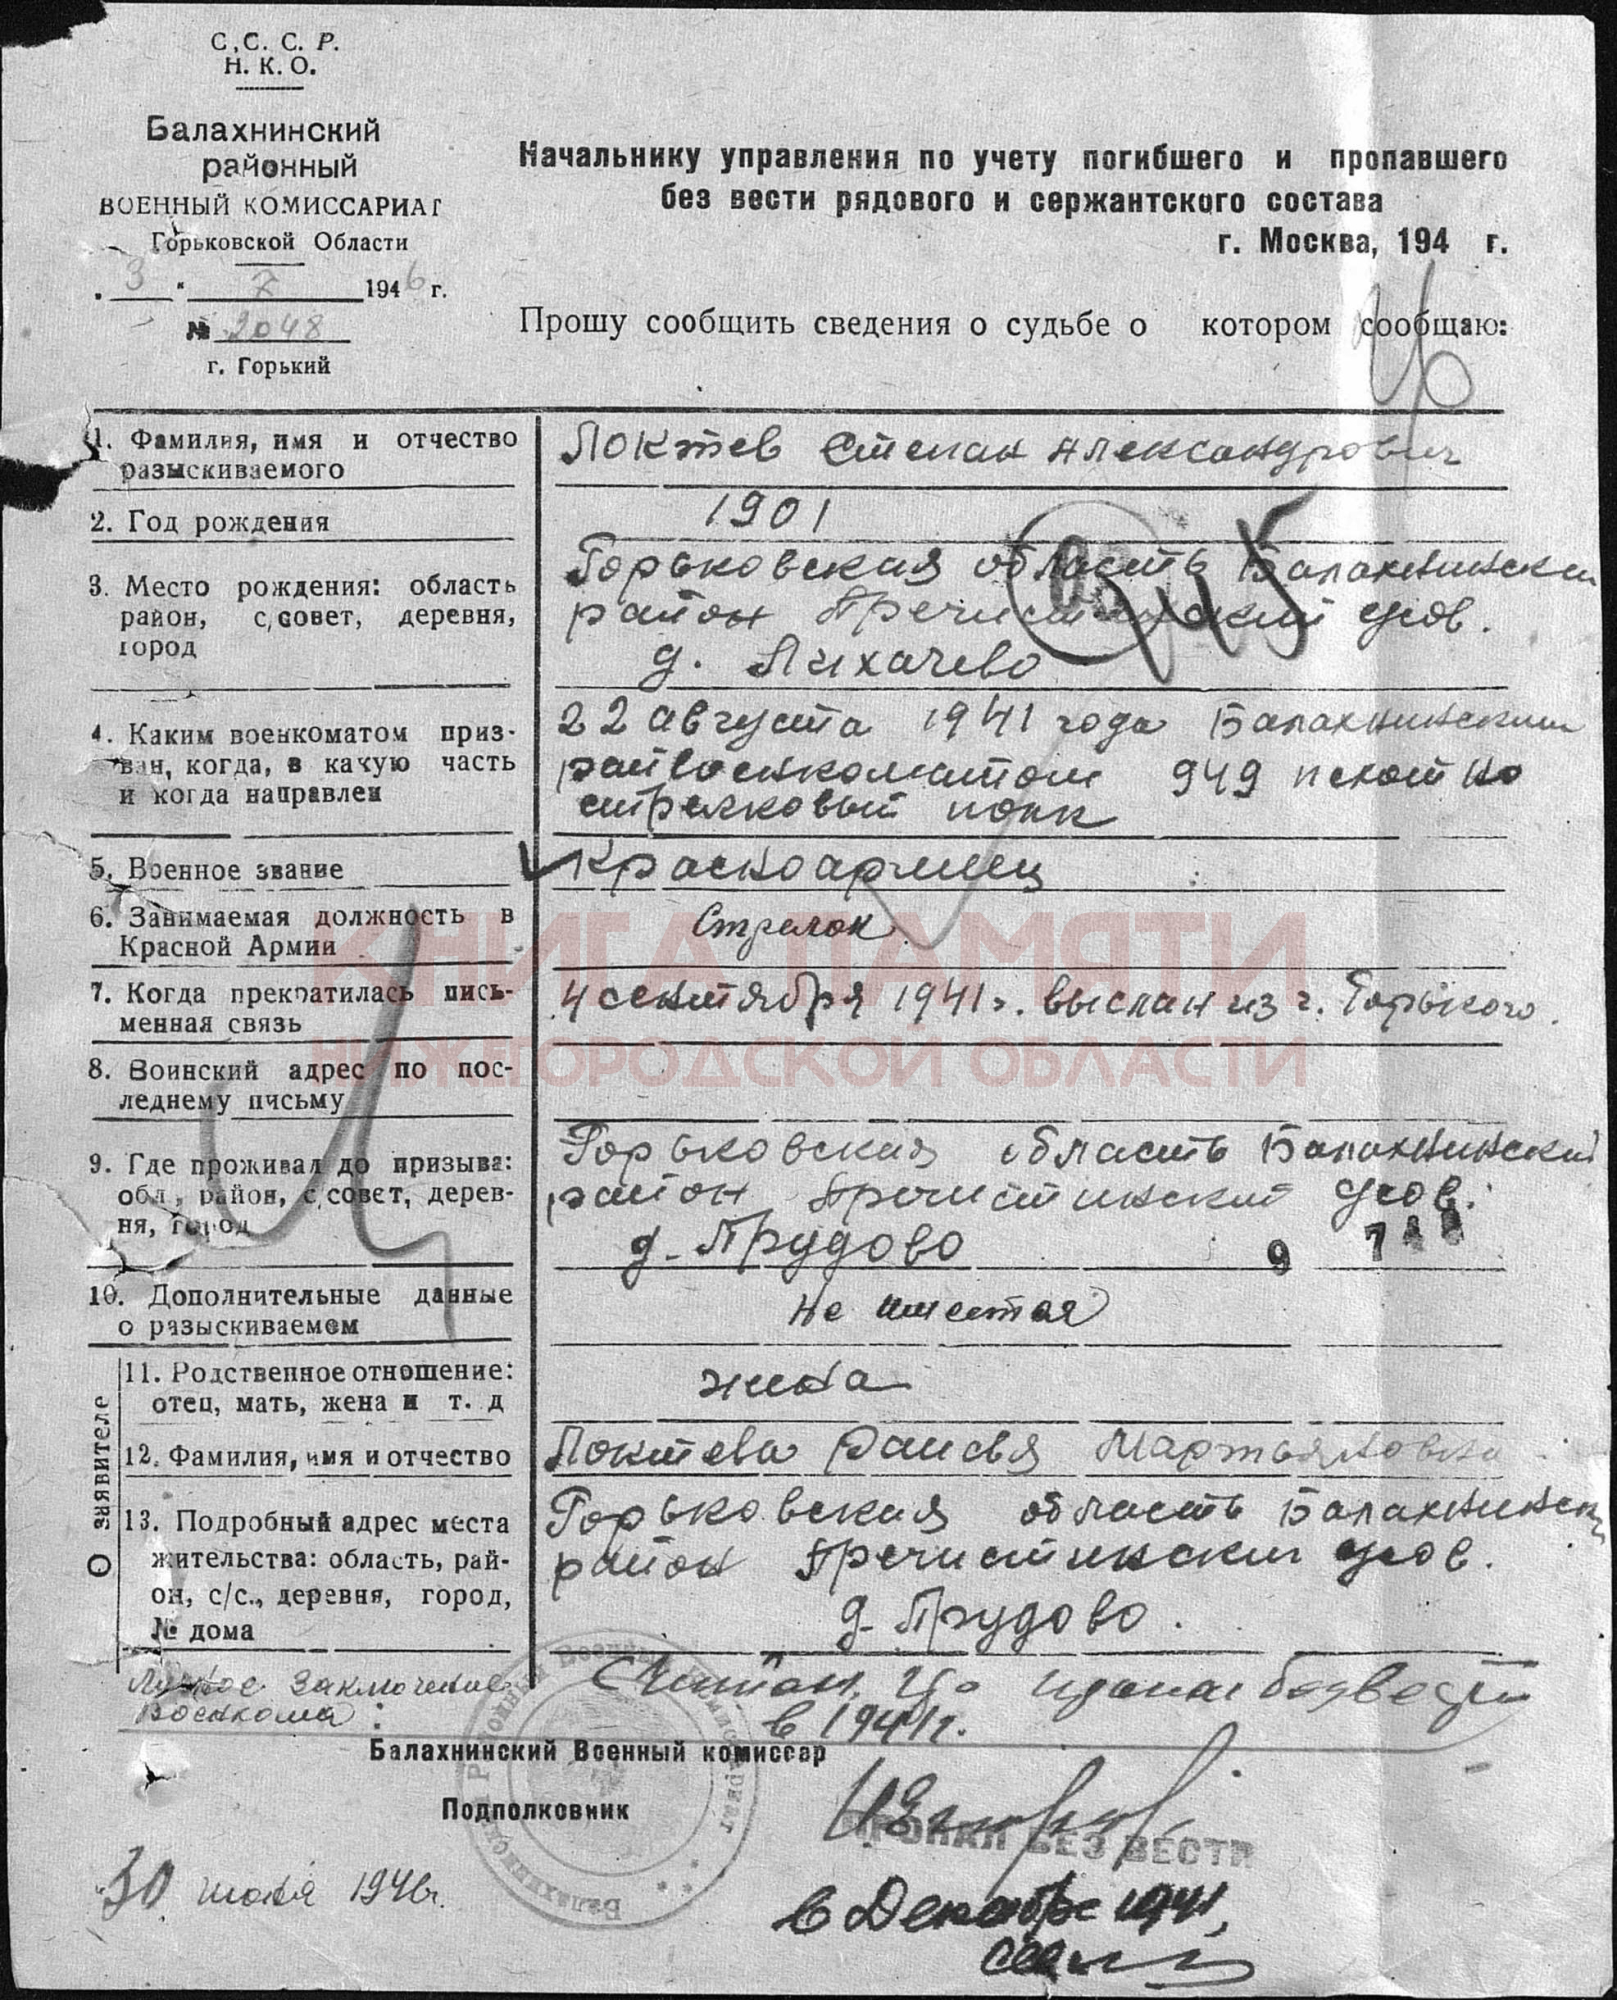 С.С.С.Р.
Н.К.О.
Балахнинский
районный
ВОЕННЫЙ КОМИССАРИАТ
Горьковской Области
"3" 7 1946 г.
№ 2048
г. Горький
Начальнику управления по учету погибшего и пропавшего
без вести рядового и сержантского состава
г. Москва, 194 г.
Прошу сообщить сведения о судьбе о котором сообщаю:
1. Фамилия, имя и отчество
разыскиваемого
Локтев Степан Александрович
2. Год рождения
1901
3. Место рождения: область
район, с,совет, деревня,
город
Горьковская область Балахнинский
район Пречистинский усов.
д. Лихачево
4. Каким военкоматом приз-
ван, когда, в какую часть
и когда направлен
22 августа 1941 года Балахнинским
райвоенкоматом 949
стрелковый полк
5. Военное звание
Красноармеец
6. Занимаемая должность в
Красной Армии
Стрелок
7. Когда прекратилась пись-
менная связь
4 сентября 1941 г. выслан из г. Горького.
8. Воинский адрес по пос-
леднему письму
9. Где проживал до призыва:
обл, район, с,совет, дерев-
ня, город
Горьковская область Балахнинский
район Пречистинский усов.
д. Прудово
9
10. Дополнительные данные
о разыскиваемом
не имеется
О заявителе
11. Родственное отношение:
отец, мать, жена и т. д
жена
12. Фамилия, имя и отчество
Локтева Мартьяновна
13. Подробный адрес места
жительства: область, рай-
он, с/с., деревня, город,
№ дома
Горьковская область Балахнинский
район Пречистинский усов.
д. Прудово.
заключение
Военкома:
без вести
в 1941 г.
Балахнинский Военный комиссар
Подполковник
ПРОПАЛ БЕЗ ВЕСТИ
30 июня 1946 г.
в Декабре 1941,
КНИГА ПАМЯТИ
НИЖЕГОРОДСКОЙ ОБЛАСТИ